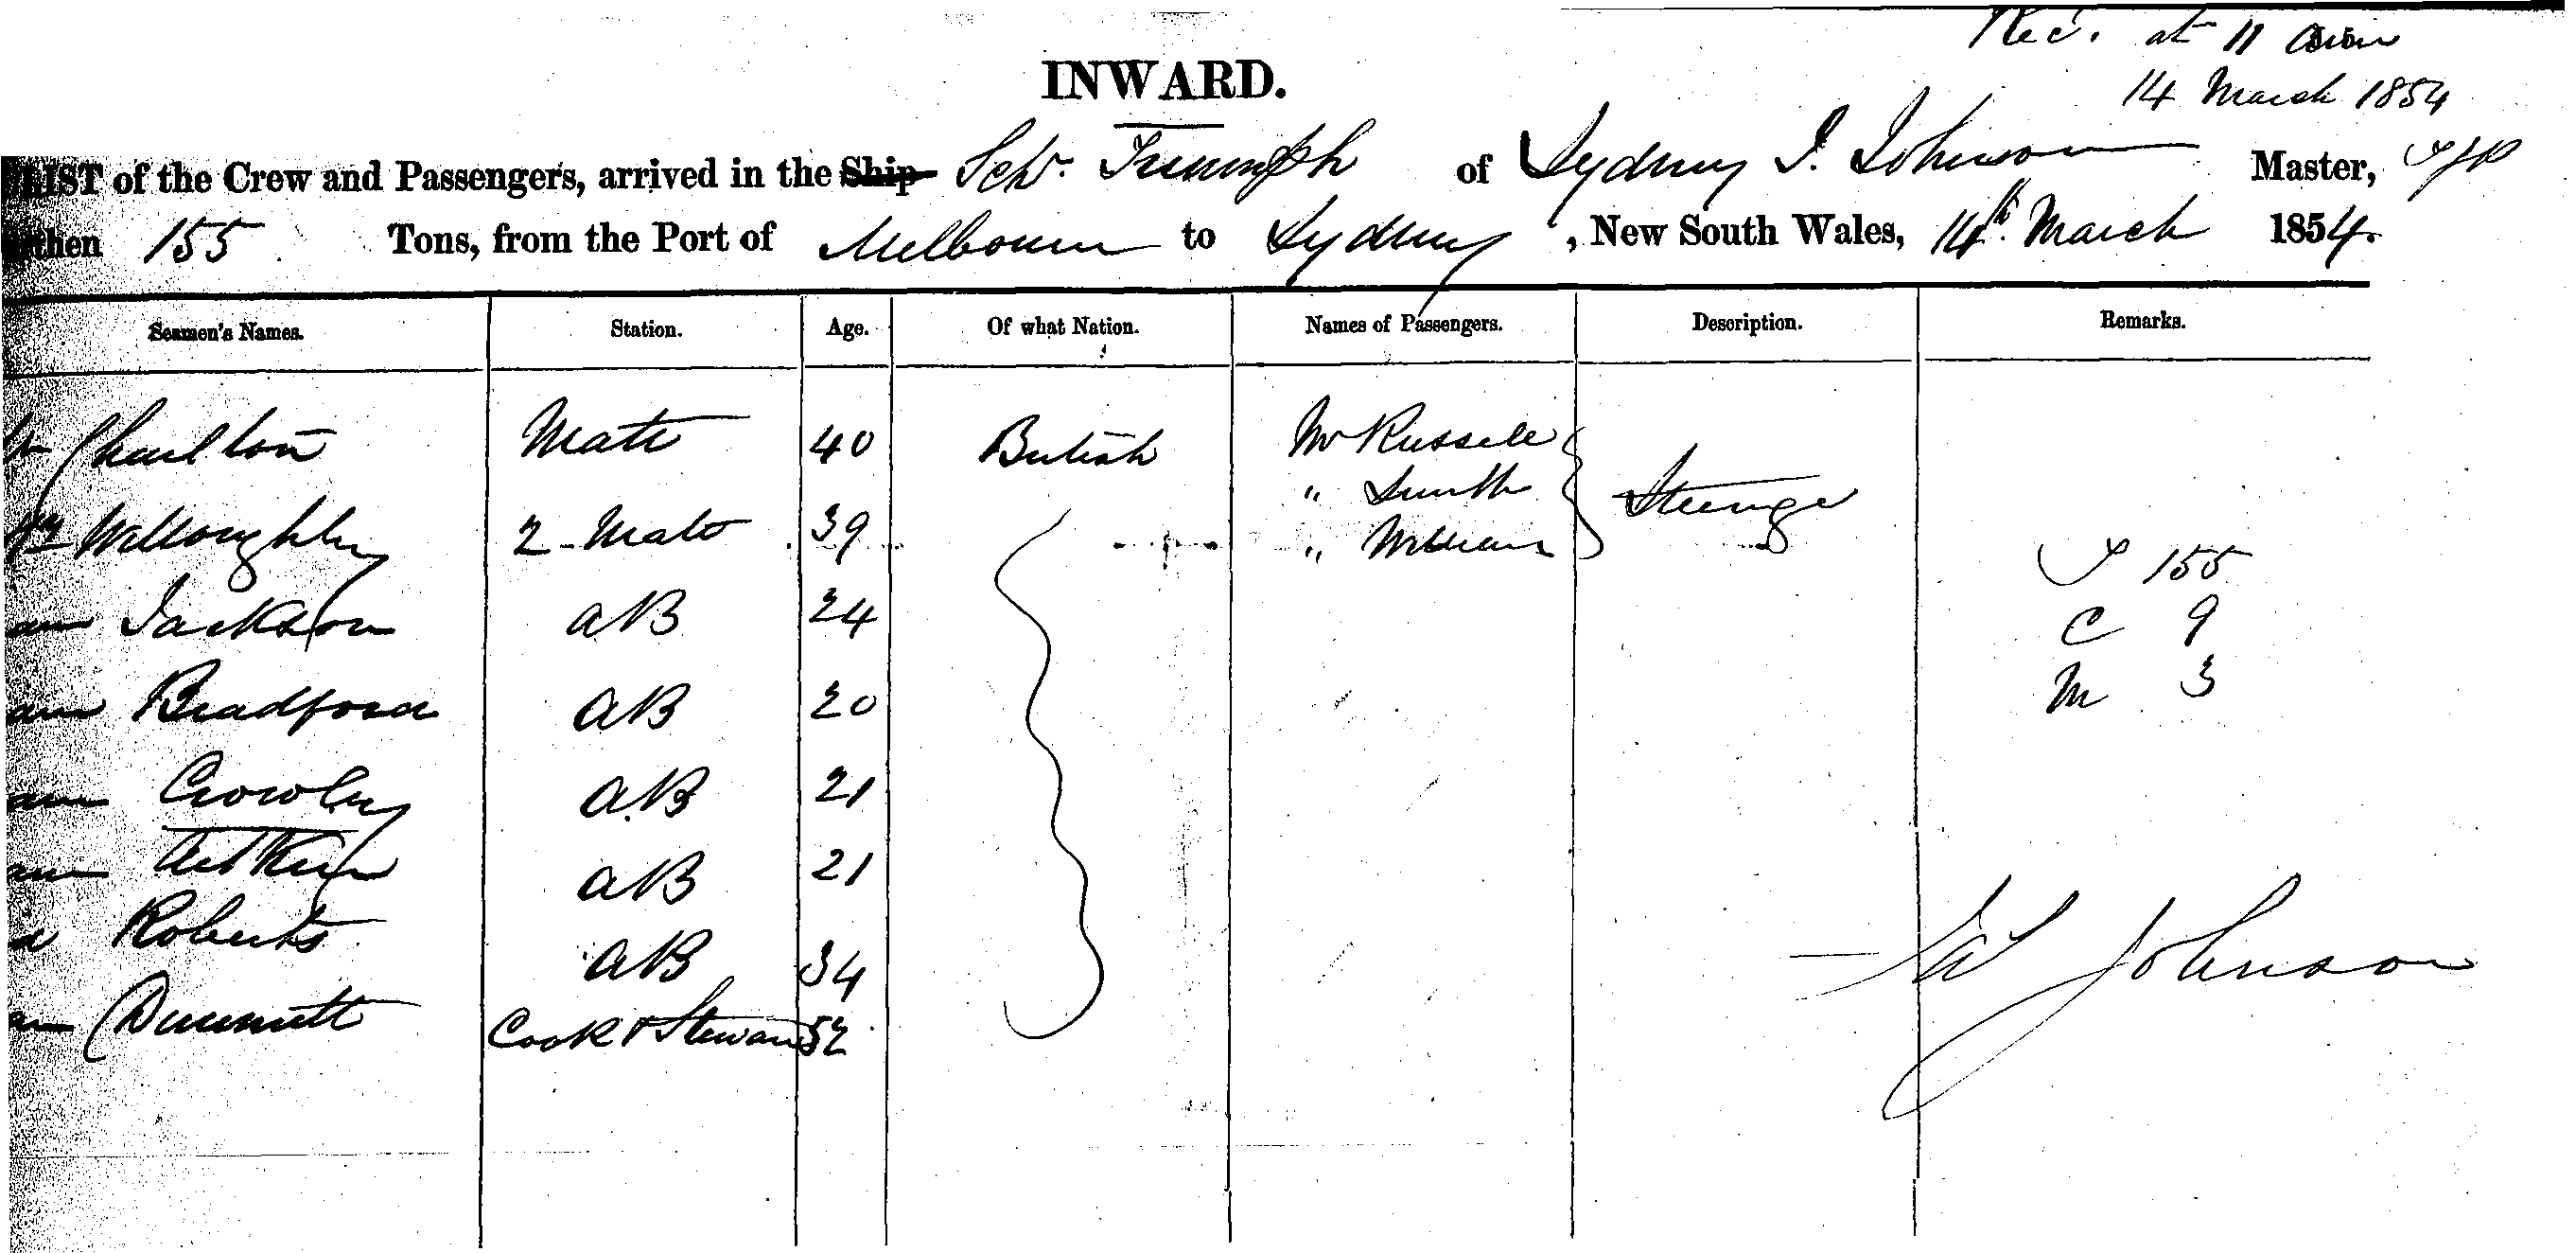 Rec. at 11
14 March 1854
INWARD.
LIST of the Crew and Passengers, arrived in the Ship Schr. Triumph of Sydney I. Johnson Master,
then 155 Tons, from the Port of Melbourn to Sydney, New South Wales, 14th March 1854.
Seamen's Names. Station. Age. Of what Nation. Names of Passengers. Description. Remarks.
Charlton Mate 40 British Mr Russell
" Smith Steerage
Willoughby 2 Mate 39 " William
155
Jackson AB 24 C 9
Bradford AB 20 M 3
Crowley AB 21
AB 21
Roberts AB 34 Johnson
Cook & Steward 52